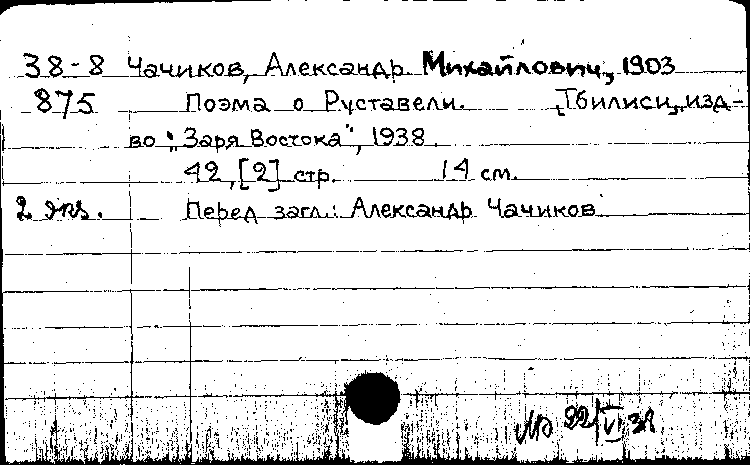 38-8 Чачиков, Александр Михайлович, 1903
875 Поэма о Руставели. [Тбилиси], изд-
во "Заря Востока", 1938.
42, [2] стр. 14 см.
2 экз. Перед загл.: Александр Чачиков
22/VI 38